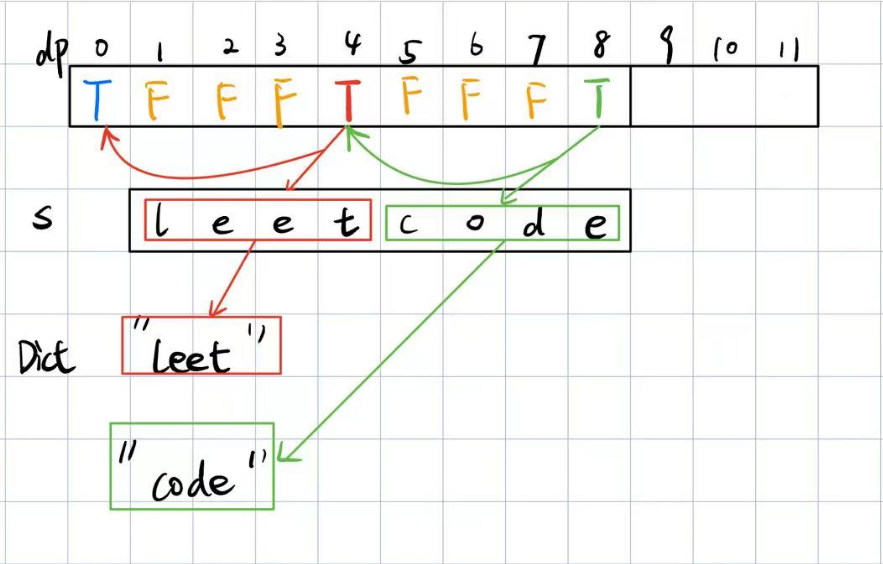 dp 0 1 2 3 4 5 6 7 8 9 10 11
T F F F T F F F T
s l e e t c o d e
Dict "leet"
"code"